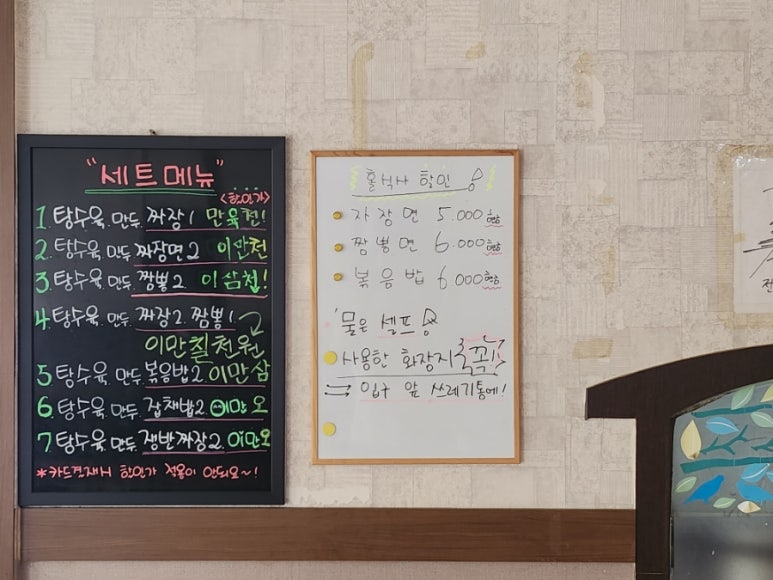 "세트메뉴"
<할인가>
1. 탕수육. 만두. 짜장1 만육천!
2. 탕수육. 만두. 짜장면2 이만천
3. 탕수육. 만두. 짬뽕2 이삼천!
4. 탕수육. 만두. 짜장2. 짬뽕1
이만칠천원
5 탕수육. 만두. 볶음밥2. 이만삼
6. 탕수육. 만두. 잡채밥2. 이만오
7. 탕수육. 만두. 쟁반짜장2. 이만오
*카드결재시 할인가 적용이 안되요~!
홀식사 할인
자장면 5.000 현금
짬뽕면 6.000 현금
볶음밥 6.000 현금
물은 셀프
사용한 화장지 꼭!
입구 앞 쓰레기통에!